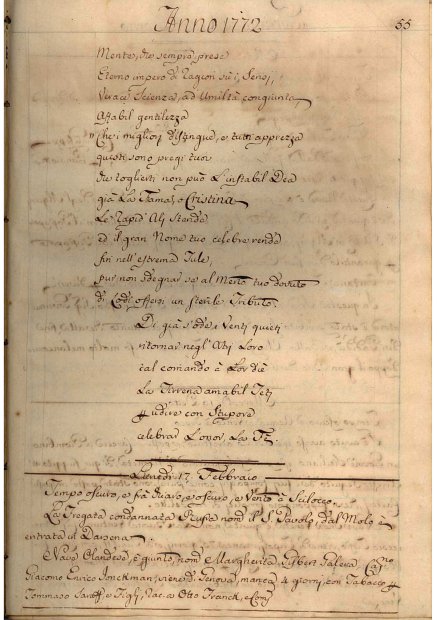 Anno 1772
55
Mente, che sempre prese
Eterno impero di Ragion su i Sensi,
Verace Scienza, ad Umiltà congiunta,
Affabil gentilezza
Che i migliori distingue, e tutti apprezza
questi sono pregi tuoi
che toglierti non può L'instabil Dea
già La Fama, o Cristina
Le Rapid' Ali Stende
ed il gran Nome tuo celebre rende
fin nell'estrema Tule,
pur non sdegnar se al Merto tuo dovuto
di Lodi offersi un sterile Tributo.
Di già s'ode i Venti quieti
ritornar negl'Atri Loro
tal comando è Lor diè
La Tirrena amabil Teti
udire con Stupore
celebrar L'onor, La
Lunedì 17 Febbraio
Tempo oscuro, e fra chiaro, e oscuro, e Vento à Scilocco.
La Fregata condannata Russa nom.ta il S. Pavolo, dal Molo è
entrata in Darsena.
Nave Olandese, è giunto, nom.ta Margherita Gilbert Cap.no
Giacomo Enrico Jonckman, viene di Genova, manca 4 giorni, con Tabacco
Tommaso e Figli, Otto Franck, e Comp.